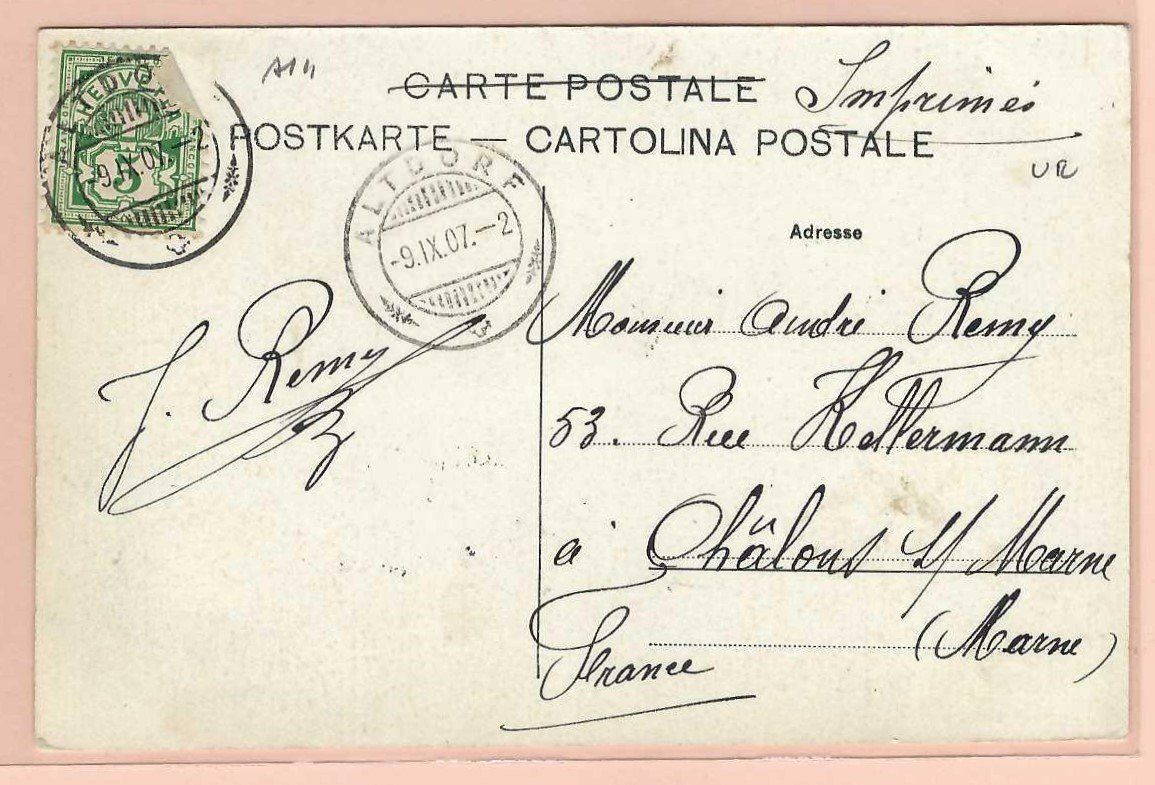 A14
CARTE POSTALE
Imprimés
POSTKARTE — CARTOLINA POSTALE
UR
HELVETIA
5
-9.IX.07.-2
ALTDORF
-9.IX.07.-2
Adresse
Monsieur André Remy
J. Remy
53. Rue Kellermann
à Châlons s/ Marne
(Marne)
France